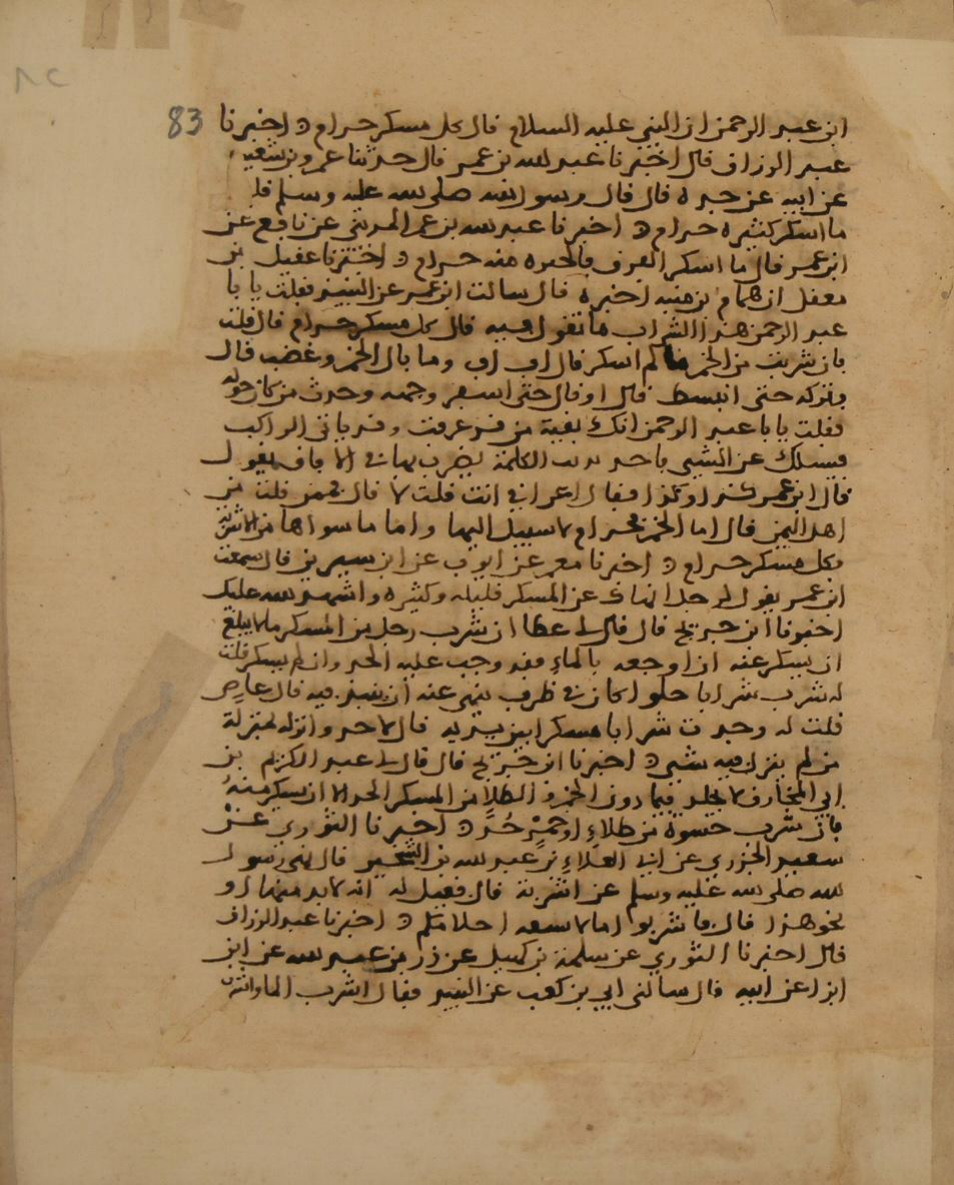 83
ابن عبد الرحمن ان النبي عليه السلام قال كل مسكر حرام اخبرنا
عبد الرزاق قال اخبرنا عبد الله بن عمر قال حدثنا عمرو بن شعيب
عن ابيه عن جده قال قال رسول الله صلى الله عليه وسلم
ما اسكر كثيره حرام اخبرنا عبد الله بن عمر المدني عن نافع عن
ابن عمر قال ما اسكر الفرق فالحسوة منه حرام اخبرنا عقيل بن
معقل ان همام بن منبه اخبره قال سالت ابن عمر عن النبيذ فقلت يا با
عبد الرحمن هذا الشراب ما تقول فيه قال كل مسكر حرام قال قلت
فان شربت من الخمر فلم اسكر قال اف اف وما بال الخمر وغضب قال
فتركته حتى انبسط قال او قال حتى اسفر وجهه وحدث من كان حوله
فقلت يا با عبد الرحمن انك بقية من قد عرفت وقد ياتي الراكب
فيسلك عن الشي ياخذ بذنب الكلمة يضرب بها في الافاق يقول
قال ابن عمر كذا وكذا فقال اعراقي انت قلت لا قال فممن قلت من
اهل اليمن قال اما الخمر فحرام لا سبيل اليها واما ما سواها من الاشربة
فكل مسكر حرام اخبرنا معمر عن ايوب عن ابن سيرين قال سمعت
ابن عمر يقول لرجل انهاك عن المسكر قليله وكثيره واشهد الله عليك
اخبرنا ابن جريج قال قال لي عطا ان شرب رجل من المسكر ما لا يبلغ
ان يسكر عنه اذا وجعه بالماء فقد وجب عليه الحد وان لم يسكر قلت
له شرب شرابا حلوا كان في ظرف ينهى عنه ان ينبذ فيه قال
قلت له وجدت شرابا مسكرا بين يديه قال لا حد وانزله بمنزلة
من لم ينزل فيه شي اخبرنا ابن جريج قال قال لي عبد الكريم بن
ابي المخارق لا يجلد فيما دون الخمر والطلاء من المسكر الحد الا ان يسكر منه
فان شرب حسوة من طلاء او خمر حد اخبرنا الثوري عن
سعيد الجزري عن ابي العلاء بن عبد الله بن الشخير قال نهى رسول
الله صلى الله عليه وسلم عن اشربة قال فقيل له انه لا بد منها او
نحو هذا قال فاشربوا ما لا يسفه احلامكم اخبرنا عبد الرزاق
قال اخبرنا الثوري عن سلمة بن كهيل عن ذر بن عبد الله عن ابن
ابزا عن ابيه قال سالت ابي بن كعب عن النبيذ فقال اشرب الما واشرب